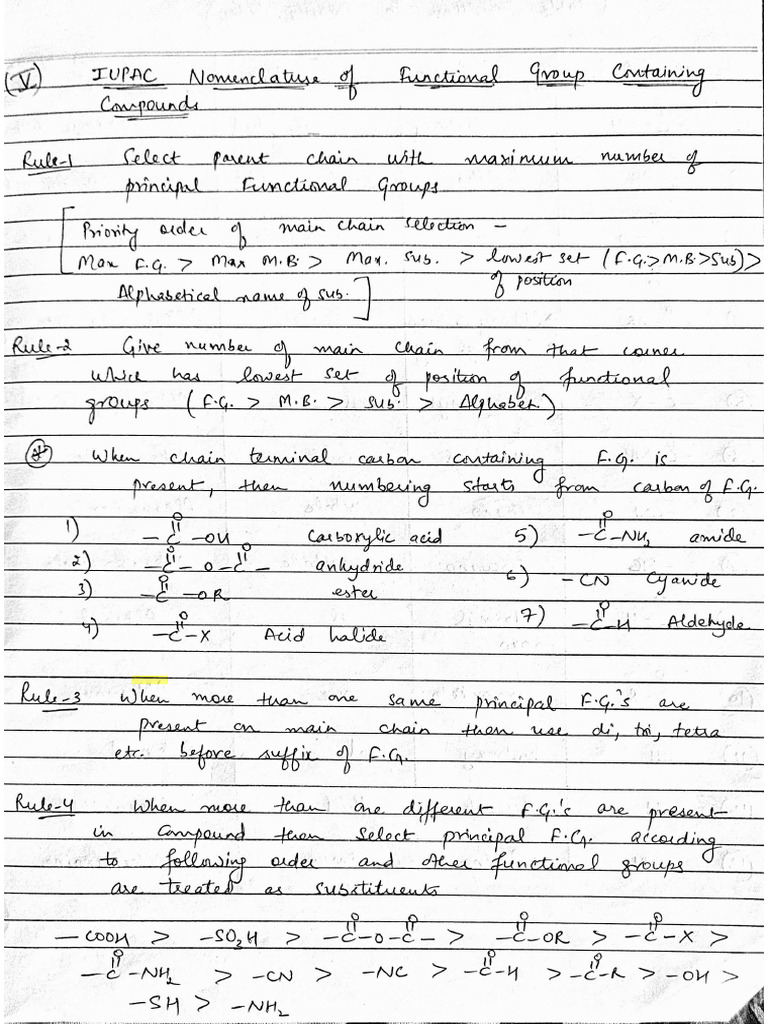 (V) IUPAC Nomenclature of Functional Group Containing
Compounds
Rule-1 Select parent chain with maximum number of
principal Functional Groups
[Priority order of main chain selection -
Max F.G. > Max M.B. > Max. Sub. > lowest set (F.G.>M.B.>Sub)>
of position
Alphabetical name of sub.]
Rule-2 Give number of main chain from that corner
which has lowest set of position of functional
groups (F.G. > M.B. > Sub. > Alphabet.)
* When chain terminal carbon containing F.G. is
present, then numbering starts from carbon of F.G.
1) -C(=O)-OH Carboxylic acid 5) -C(=O)-NH2 amide
2) -C(=O)-O-C(=O)- anhydride
3) -C(=O)-OR ester 6) -CN Cyanide
4) -C(=O)-X Acid halide 7) -C(=O)-H Aldehyde
Rule-3 When more than one same principal F.G.'s are
present on main chain then use di, tri, tetra
etc. before suffix of F.G.
Rule-4 When more than one different F.G.'s are present
in compound then select principal F.G. according
to following order and other functional groups
are treated as substituents
-COOH > -SO3H > -C(=O)-O-C(=O)- > -C(=O)-OR > -C(=O)-X >
-C(=O)-NH2 > -CN > -NC > -C(=O)-H > -C(=O)-R > -OH >
-SH > -NH2